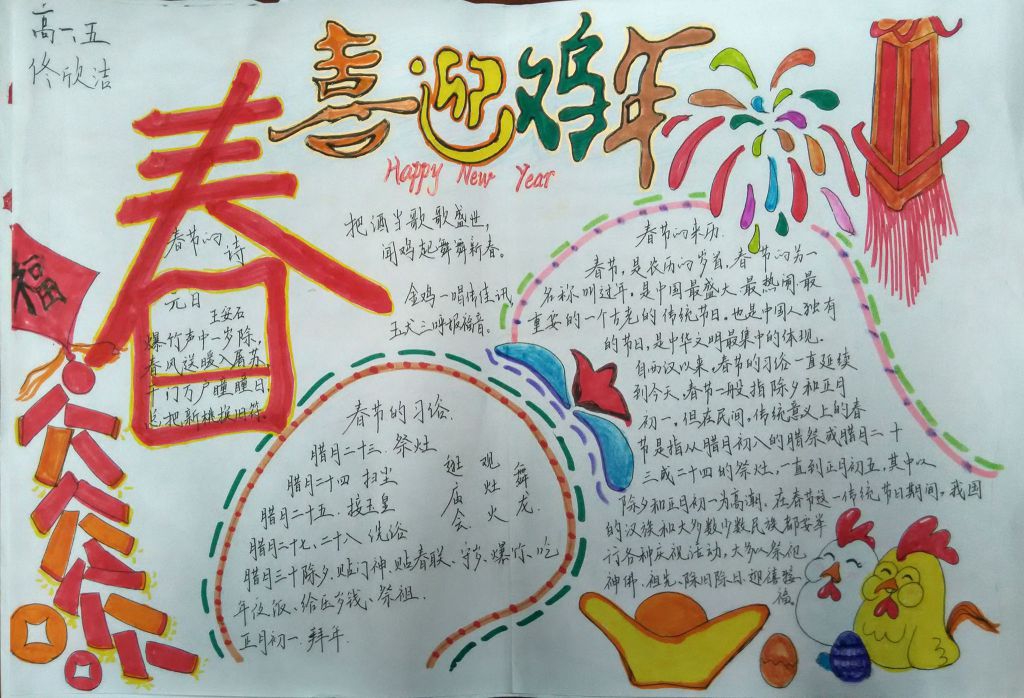 高一、五
佟欣洁
喜迎鸡年
Happy New Year
春
福
春节的
诗
元日
王安石
爆竹声中一岁除,
春风送暖入屠苏,
千门万户瞳瞳日,
总把新桃换旧符.
把酒当歌歌盛世,
闻鸡起舞舞新春。
金鸡一唱传佳讯
玉犬三呼报福音。
春节的来历.
春节,是农历的岁首,春节的另一
名称叫过年,是中国最盛大、最热闹、最
重要的一个古老的传统节日。也是中国人独有
的节日,是中华文明最集中的体现.
自西汉以来,春节的习俗一直延续
到今天,春节一般指除夕和正月
初一。但在民间,传统意义上的春
节是指从腊月初八的腊祭或腊月二十
三或二十四的祭灶,一直到正月初五,其中以
除夕和正月初一为高潮.在春节这一传统节日期间,我国
的汉族和大多数少数民族都要举
行各种庆祝活动,大多以祭祀
神佛、祖先、除旧除日、迎禧
福.
春节的习俗.
腊月二十三.祭灶
腊月二十四 扫尘
腊月二十五.接玉皇
腊月二十七、二十八 洗浴
腊月三十除夕.贴门神.贴春联、守岁、爆竹、吃
年夜饭、给压岁钱、祭祖.
正月初一.拜年.
逛庙会
观灶火
舞龙.